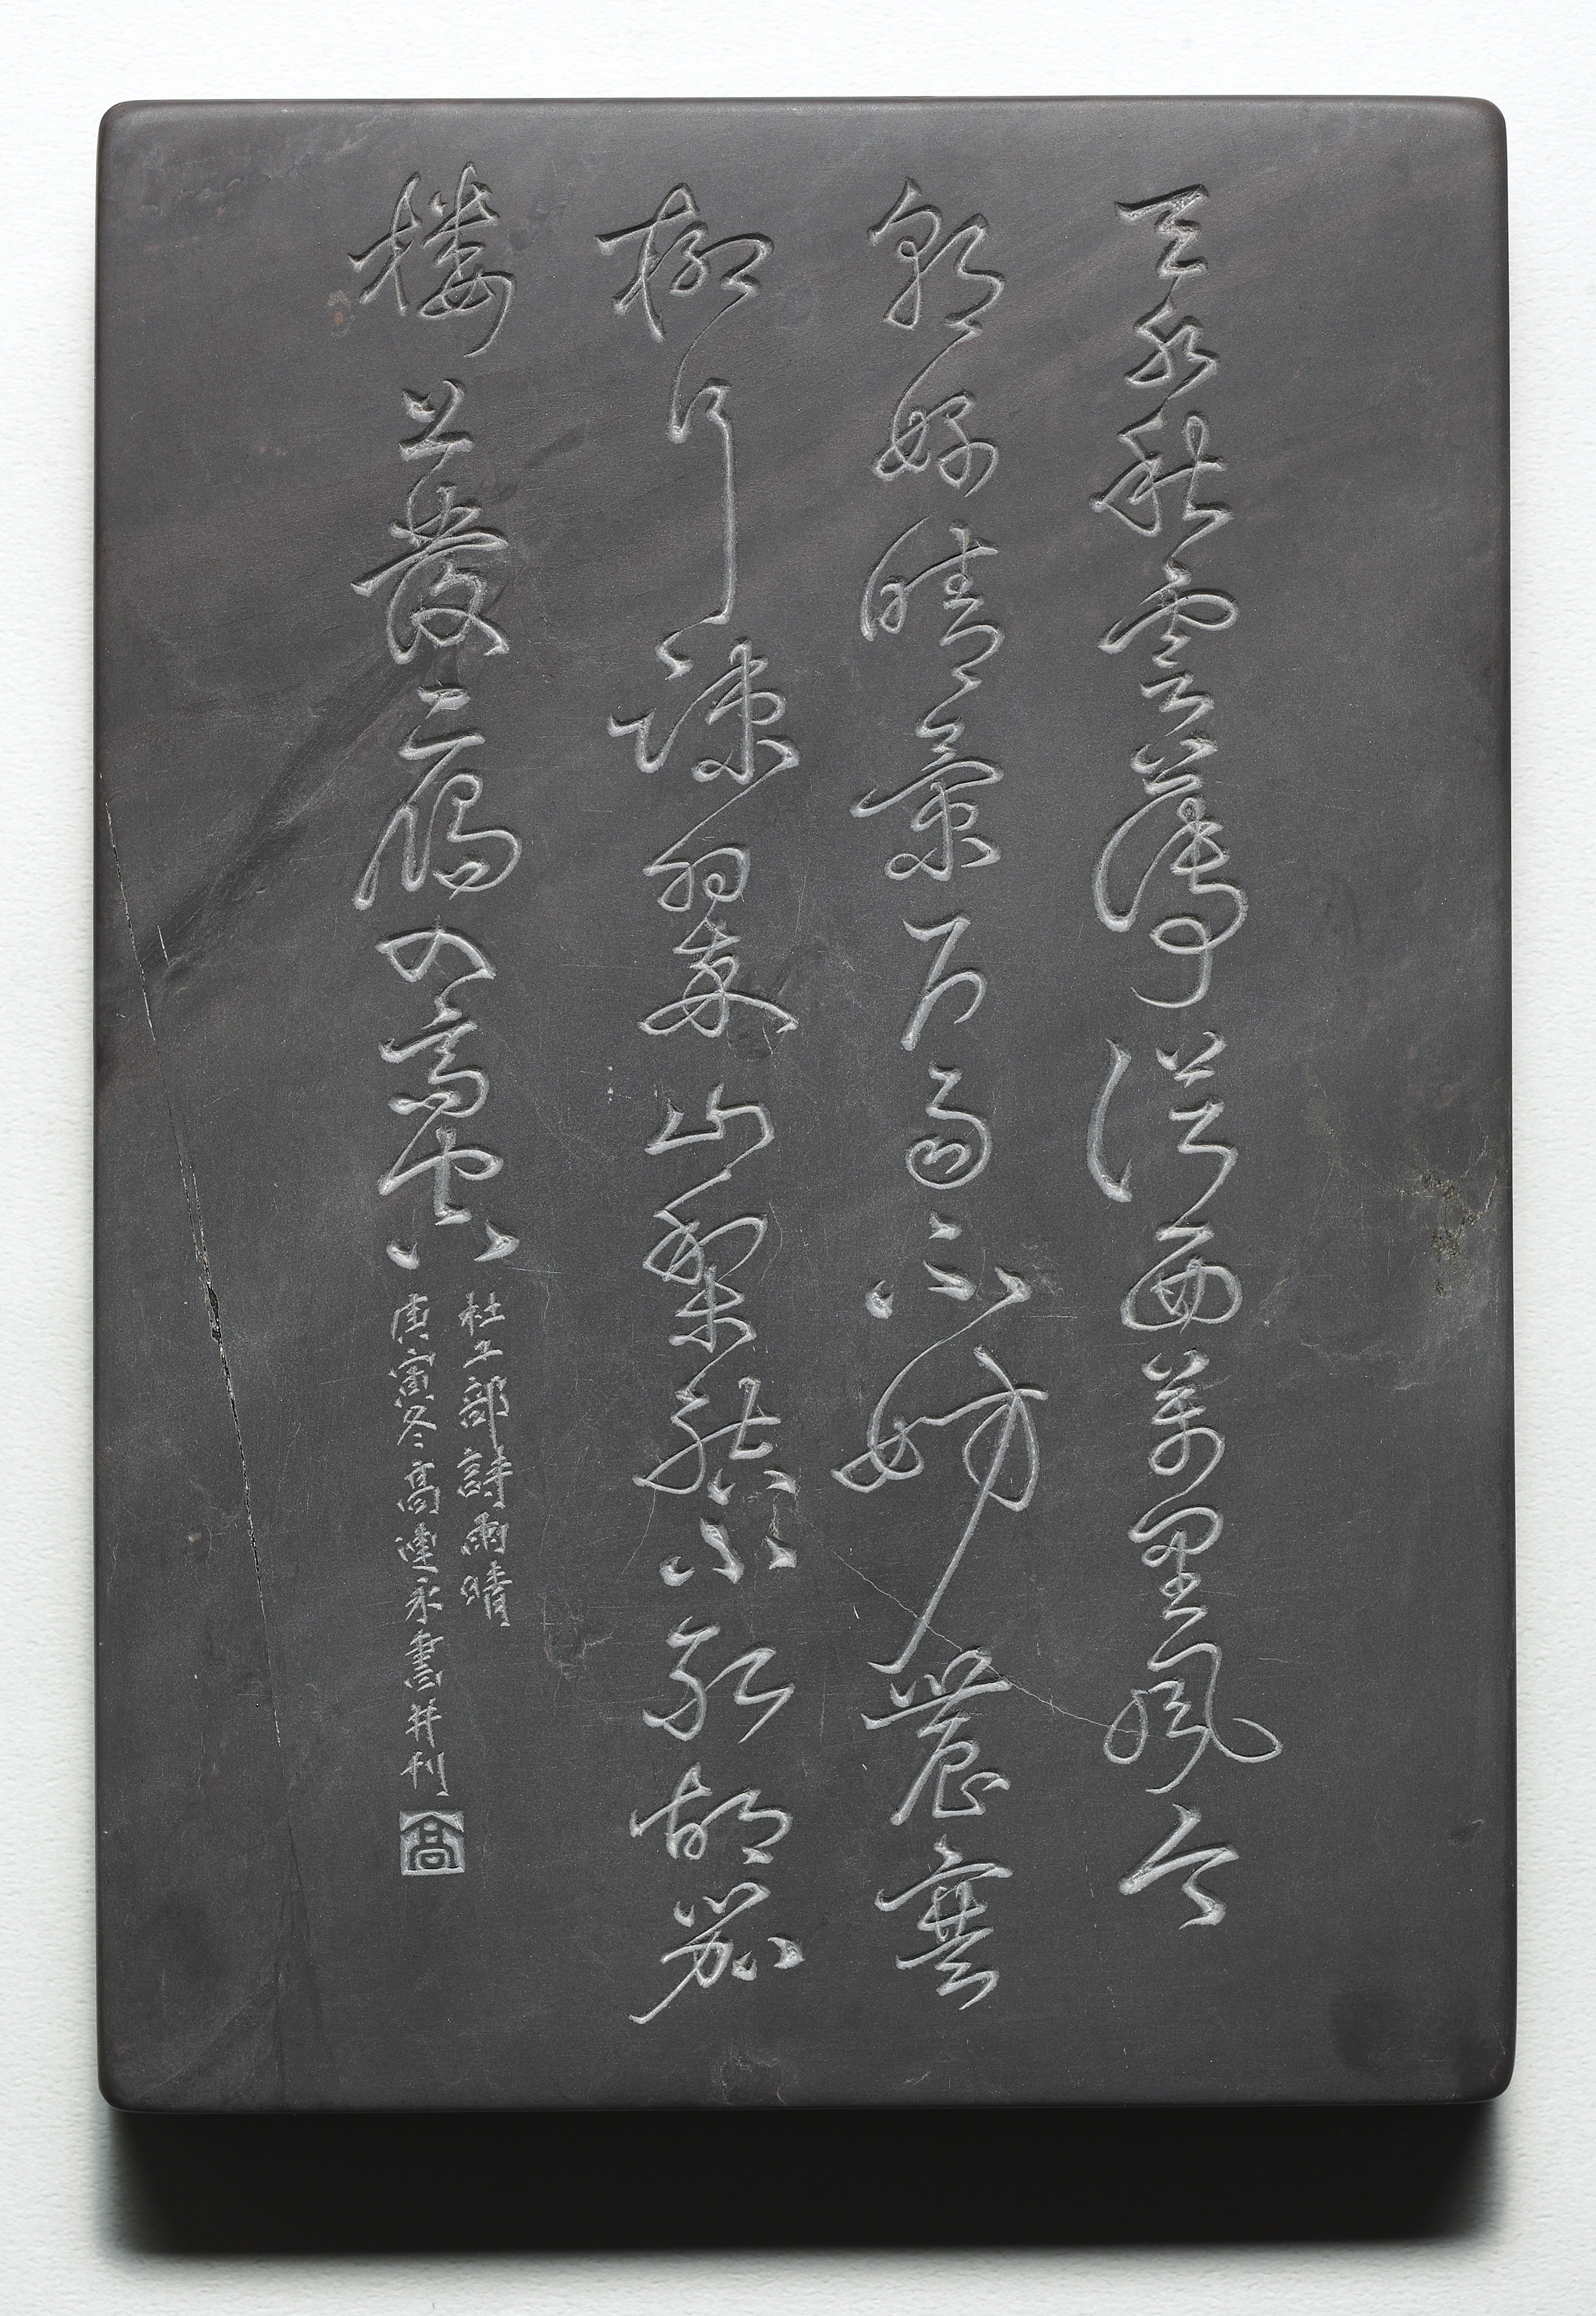 天水秋雲薄從西萬里風今
朝好晴景久雨不妨農塞
柳行疎翠山梨結小紅胡笳
樓上發一雁入高空
杜工部詩雨晴
庚寅冬高連永書并刊
高